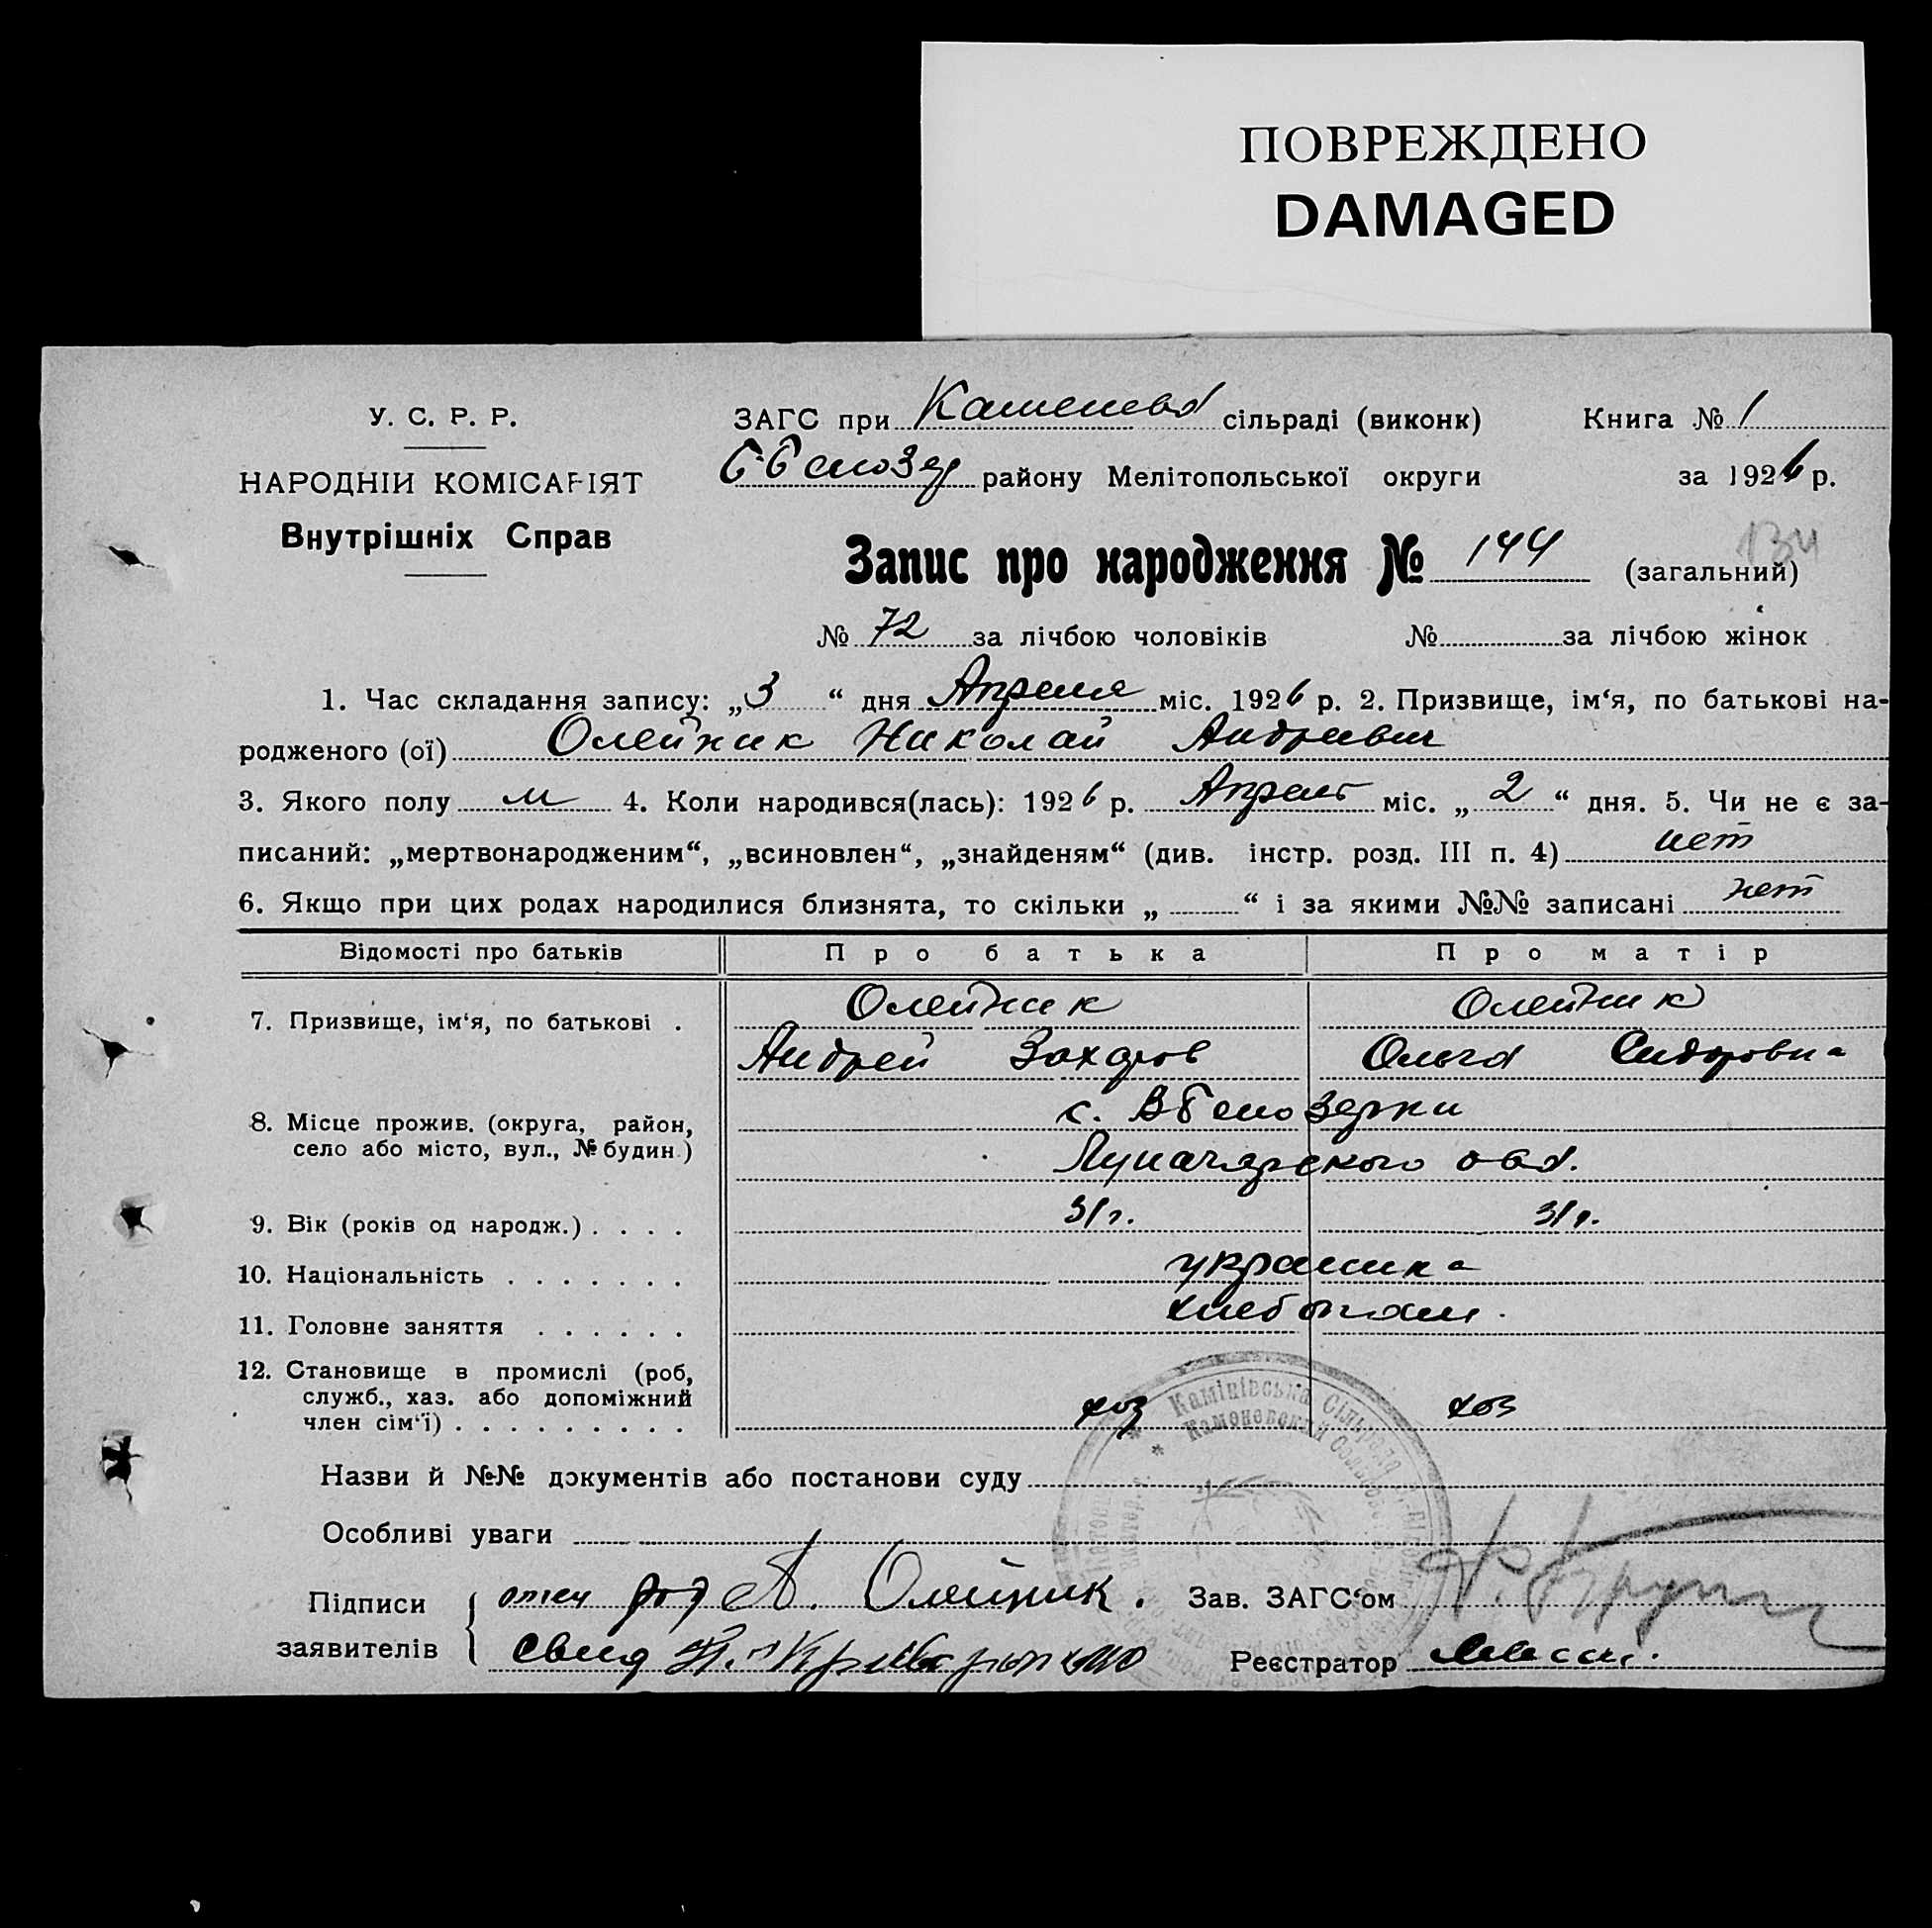 ПОВРЕЖДЕНО
DAMAGED
У. С. Р. Р.
НАРОДНІЙ КОМІСАРІЯТ
Внутрішніх Справ
ЗАГС при Каменева сільраді (виконк) Книга № 1
району Мелітопольської округи за 1926 р.
134
Запис про народження № 144 (загальний)
№ 72 за лічбою чоловіків № за лічбою жінок
1. Час складання запису: „3“ дня Апреля міс. 1926 р. 2. Призвище, ім‘я, по батькові на-
родженого (ої) Олейник Николай Андреевич
3. Якого полу м 4. Коли народився(лась): 1926 р. Апрель міс. „2“ дня. 5. Чи не є за-
писаний: „мертвонародженим“, „всиновлен“, „знайденям“ (див. інстр. розд. III п. 4) нет
6. Якщо при цих родах народилися близнята, то скільки „ “ і за якими №№ записані нет
Відомості про батьків Про батька Про матір
7. Призвище, ім‘я, по батькові . Олейник Олейник
Андрей Захаров Ольга Сидоровна
8. Місце прожив. (округа, район, с. Вбелозерки
село або місто, вул., № будин.) Луначарского
9. Вік (років од народж.) . . . . 31 г. 31 г.
10. Національність . . . . . . . украинка
11. Головне заняття . . . . . . хлебопаш.
12. Становище в промислі (роб,
служб., хаз. або допоміжний
член сім‘ї) . . . . . . . . . хоз хоз
Камінівська Сільрада
Каменевский
Назви й №№ документів або постанови суду
Особливі уваги
Підписи заявителів
отец А. Олейник. Зав. ЗАГС‘ом
свид Реєстратор